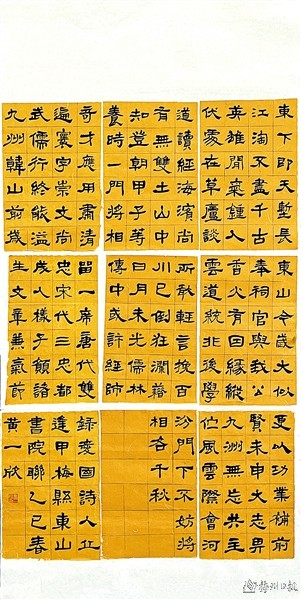 東下即天塹長
江淘不盡千古
英雄閒氣鍾人
伏處在草廬談
道讀經海濱尚
有無雙士山中
知登朝甲子等
養時一門將相
奇才應用肅清
遍寰宇崇文尚
武儒行終能溢
九州韓山前歲
東山今歲大似
奉祠官與我公
香火有因緣縱
雲道統非後學
所敢輕言挽百
川已倒狂瀾藉
日月末光儒林
傳中或許經師
留一席唐代雙
忠宋代三忠都
成人樣子願諸
生文章兼氣節
更以功業補前
賢未申大志畀
九州無忘共主
伫風雲際會河
汾門下不妨將
相名千秋
錄愛國詩人丘
逢甲梅縣東山
書院聯乙巳春
黃一欣
梅州日报